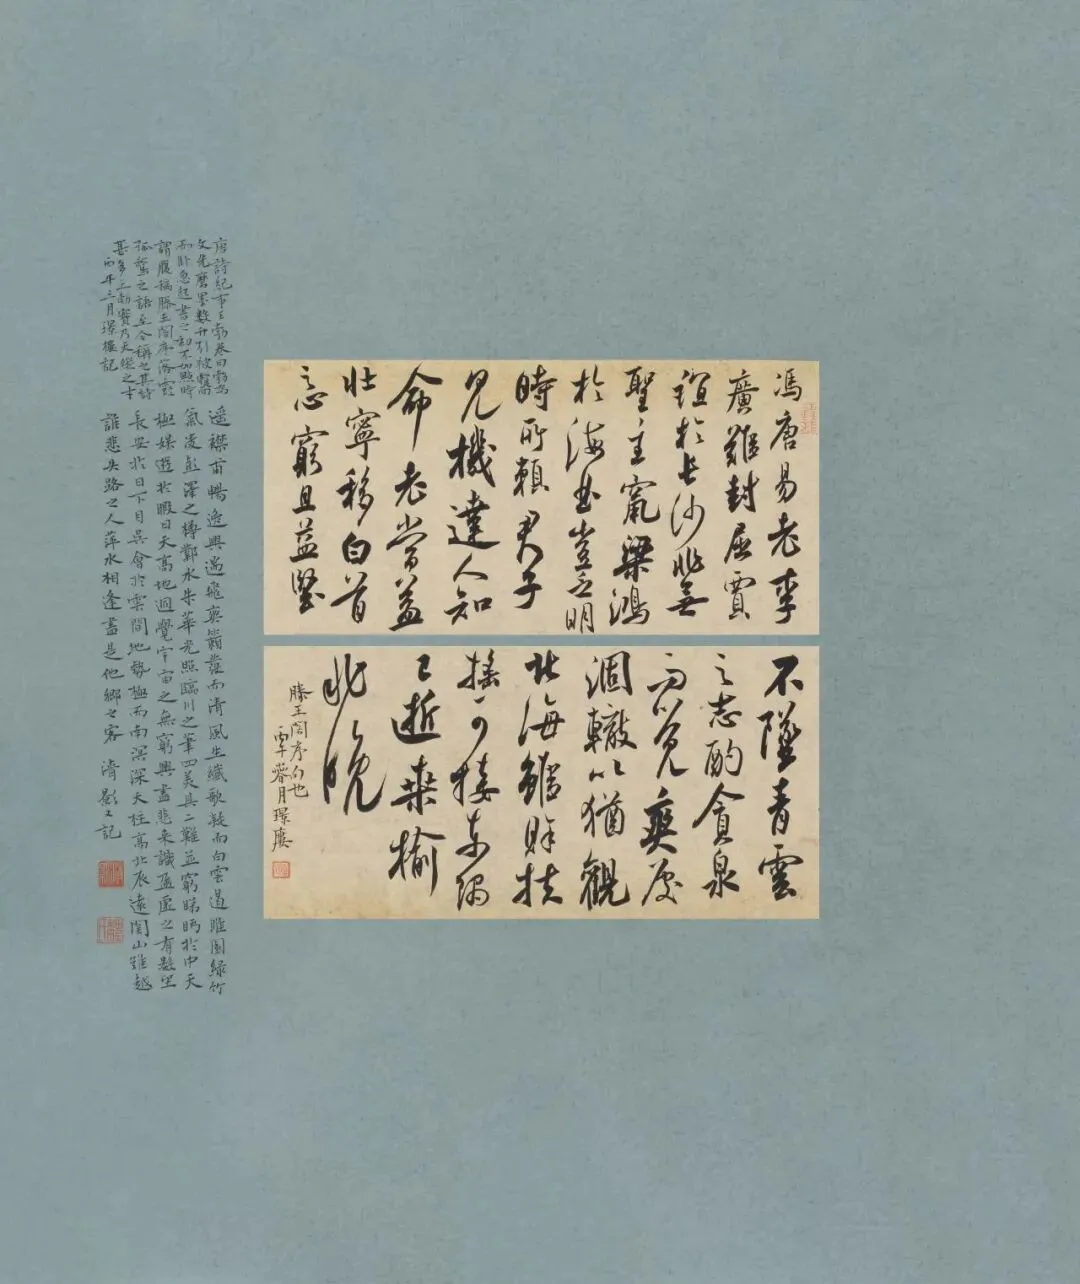 馮唐易老李
廣難封屈賈
誼於長沙非無
聖主竄梁鴻
於海曲豈乏明
時所賴君子
見機達人知
命老當益
壯寧移白首
之心窮且益堅
不墜青雲
之志酌貪泉
而覺爽處
涸轍以猶觀
北海雖賒扶
搖可接東隅
已逝桑榆
非晚
滕王閣序句也
蓉月璟廬
唐詩紀事王勃卷曰勃為
文先磨墨數升引被覆面
而卧忽起書之初不加點時
謂腹稿滕王閣序落霞
孤鶩之語至今稱之其詩
甚多王勃實乃天縱之才
丙午三月璟樓記
遥襟甫暢逸興遄飛爽籟發而清風生纖歌凝而白雲遏睢園緑竹
氣凌彭澤之樽鄴水朱華光照臨川之筆四美具二難並窮睇眄於中天
極娛遊於暇日天高地迥覺宇宙之無窮興盡悲來識盈虛之有數望
長安於日下目吳會於雲間地勢極而南溟深天柱高北辰遠關山難越
誰悲失路之人萍水相逢盡是他鄉之客 清影又記